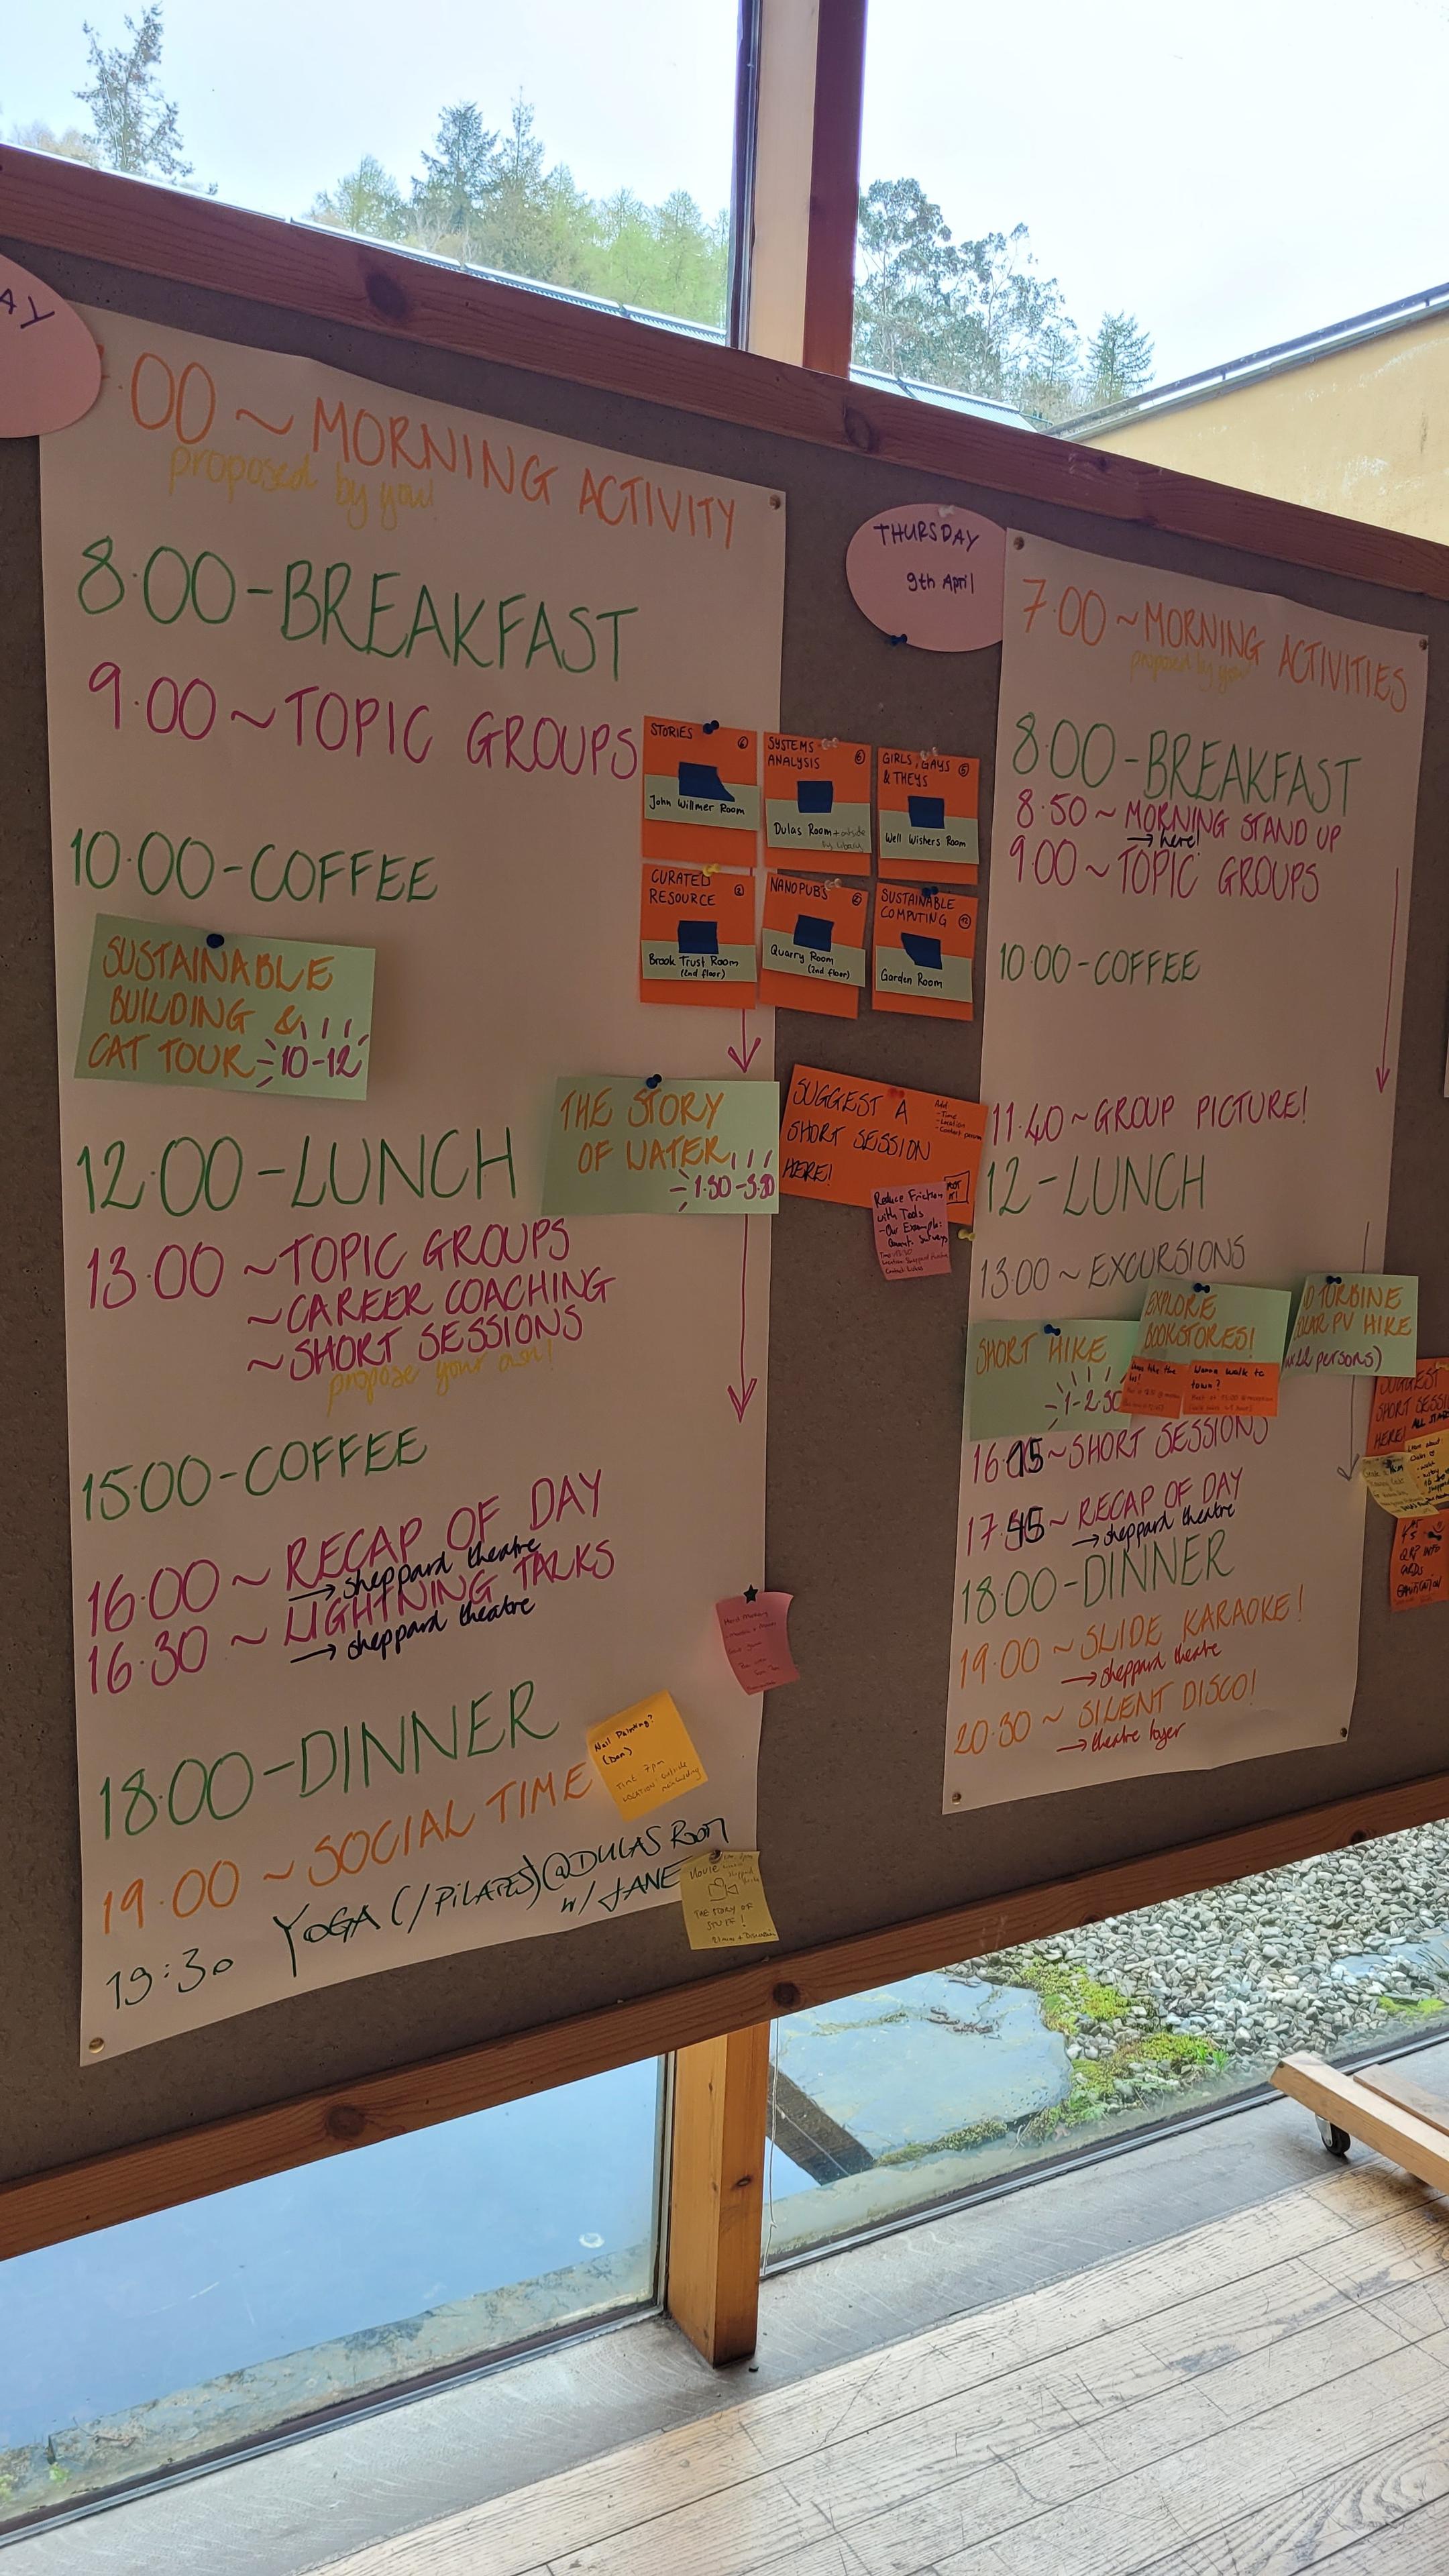 AY
:00 ~ MORNING ACTIVITY
proposed by you!
8:00 - BREAKFAST
9:00 ~ TOPIC GROUPS
10:00 - COFFEE
SUSTAINABLE
BUILDING &
CAT TOUR 10-12
12:00 - LUNCH
THE STORY
OF WATER
1.30-3.30
13:00 ~ TOPIC GROUPS
~ CAREER COACHING
~ SHORT SESSIONS
propose your own!
15:00 - COFFEE
16:00 ~ RECAP OF DAY
→ sheppard theatre
16:30 ~ LIGHTNING TALKS
→ sheppard theatre
18:00 - DINNER
19:00 ~ SOCIAL TIME
Nail Painting?
(Dan)
TIME 7pm
LOCATION outside
mainbuilding
19:30 YOGA (/PILATES) @ DULAS ROOM
w/ JANE
Movie
THE STORY OF
STUFF!
21 min + Discussion
STORIES 6
John Willmer Room
SYSTEMS 6
ANALYSIS
Dulas Room + outside
by library
GIRLS, GAYS 5
& THEYS
Well Wishers Room
CURATED
RESOURCE
Brook Trust Room
(2nd floor)
NANOPUBS
Quarry Room
(2nd floor)
SUSTAINABLE
COMPUTING 12
Garden Room
SUGGEST A
SHORT SESSION
HERE!
Add
- Time
- Location
- Contact person
Reduce Friction
with Tools
- Our Example:
THURSDAY
9th April
7:00 ~ MORNING ACTIVITIES
proposed by you
8:00 - BREAKFAST
8:50 ~ MORNING STAND UP
→ here!
9:00 ~ TOPIC GROUPS
10:00 - COFFEE
11:40 ~ GROUP PICTURE!
12 - LUNCH
13:00 ~ EXCURSIONS
SHORT HIKE
1-2.30
EXPLORE
BOOKSTORES!
Wanna walk to
town?
TURBINE
PV HIKE
22 persons)
16:15 ~ SHORT SESSIONS
17:45 ~ RECAP OF DAY
→ sheppard theatre
18:00 - DINNER
19:00 ~ SLIDE KARAOKE!
→ sheppard theatre
20:30 ~ SILENT DISCO!
→ theatre foyer
SUGGEST
SHORT SESSI
HERE!